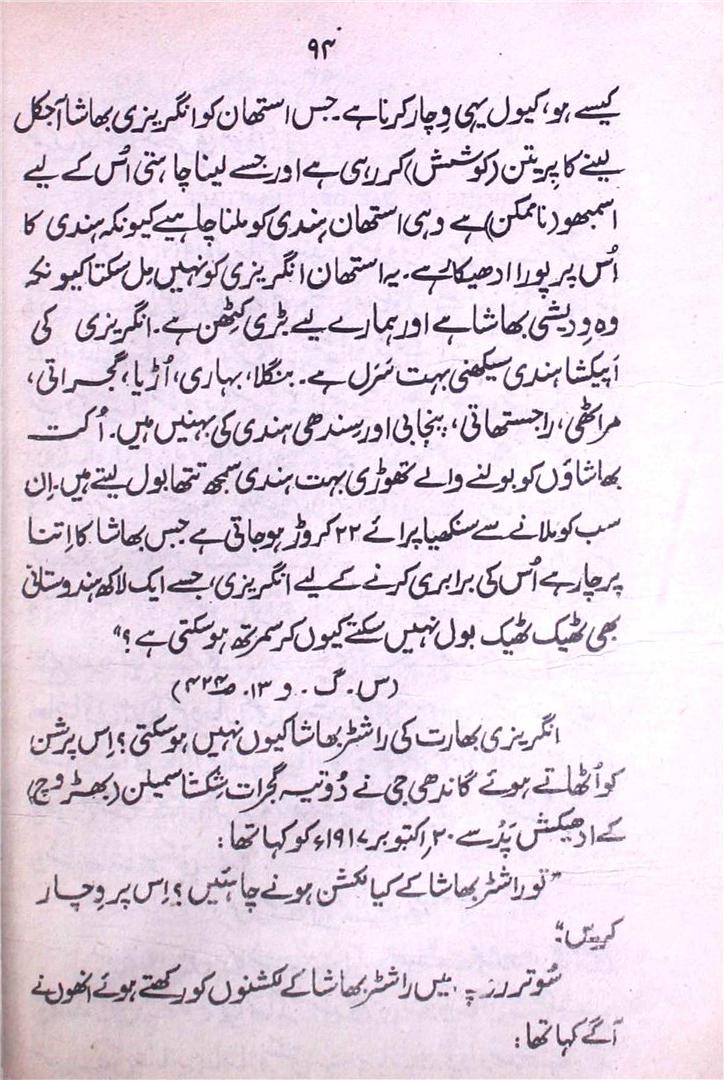 ۹۴
کیسے ہو، کیول یہی وچار کرنا ہے۔ جس استھان کو انگریزی بھاشا آجکل
لینے کا پریتن (کوشش) کر رہی ہے اور جسے لینا چاہتی اُس کے لیے
اسمبھو (ناممکن) ہے وہی استھان ہندی کو ملنا چاہیے کیونکہ ہندی کا
اُس پر پورا ادھیکار ہے۔ یہ استھان انگریزی کو نہیں مل سکتا کیونکہ
وہ ودیشی بھاشا ہے اور ہمارے لیے بڑی کٹھن ہے۔ انگریزی کی
اپیکشا ہندی سیکھنی بہت سَرل ہے۔ بنگلا، بہاری، اُڑیا، گجراتی،
مراٹھی، راجستھانی، پنجابی اور سندھی ہندی کی بہنیں ہیں۔ اُکت
بھاشاؤں کو بولنے والے تھوڑی بہت ہندی سمجھ تتھا بول لیتے ہیں۔ اِن
سب کو ملانے سے سنکھیا پرائے ۲۲ کروڑ ہو جاتی ہے جس بھاشا کا اِتنا
پرچار ہے اُس کی برابری کرنے کے لیے انگریزی، جسے ایک لاکھ ہندوستانی
بھی ٹھیک ٹھیک بول نہیں سکتے کیوں کر سمرتھ ہو سکتی ہے؟"
(س۔ گ۔ و ۱۳۔ ص۴۲۴)
انگریزی بھارت کی راشٹر بھاشا کیوں نہیں ہو سکتی؟ اِس پرشن
کو اُٹھاتے ہوئے گاندھی جی نے دُوتیہ گجرات شکشا سمیلن (بھڑوچ)
کے ادھیکش پَد سے ۲۰ اکتوبر ۱۹۱۷ء کو کہا تھا:
"تو راشٹر بھاشا کے کیا لکشن ہونے چاہئیں؟ اِس پر وچار
کریں"
سُوتر رُوپ میں راشٹر بھاشا کے لکشنوں کو رکھتے ہوئے انھوں نے
آگے کہا تھا: